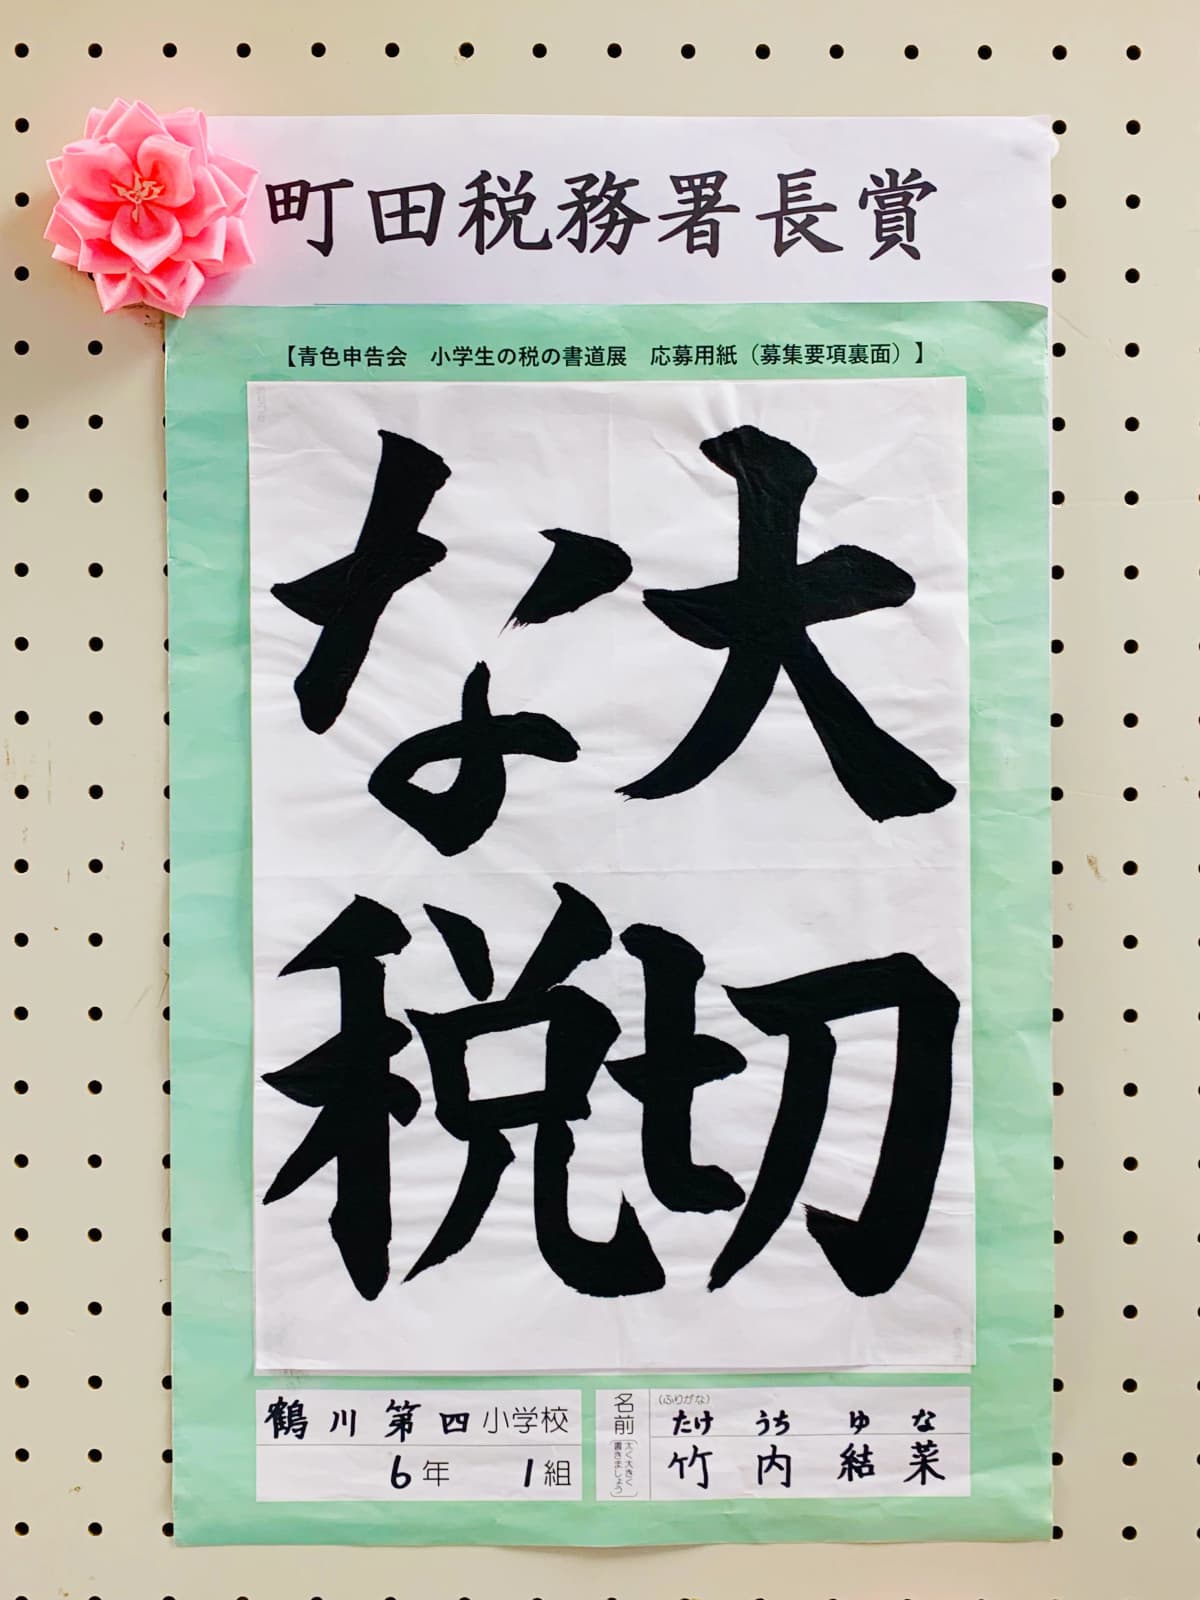 町田税務署長賞
【青色申告会　小学生の税の書道展　応募用紙（募集要項裏面）】
大切
な税
鶴川第四小学校
6年 1組
名前
（太く大きく書きましょう）
（ふりがな）
たけ うち ゆ な
竹内結菜